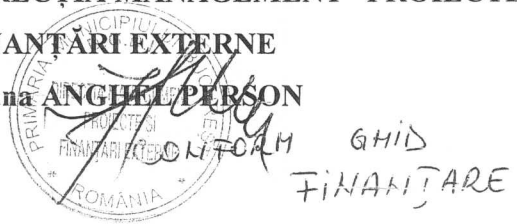 RECȚIA MANAGEMENT PROIECTE
NANȚĂRI EXTERNE
na ANGHEL PERSON
PRIMĂRIA MUNICIPIULUI
PROIECTE ȘI
FINANȚĂRI EXTERNE
ROMÂNIA
CONFORM GHID
FINANȚARE